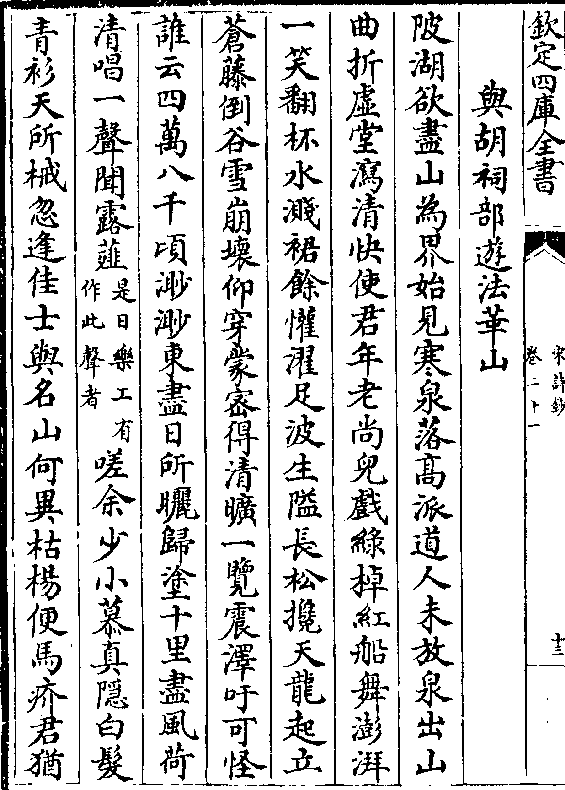 欽定四庫全書
宋詩鈔
卷二十一
十三
與胡祠部遊法華山
陂湖欲盡山為界始見寒泉落高派道人未放泉出山
曲折虛堂瀉清快使君年老尚兒戲綠棹紅船舞澎湃
一笑翻杯水濺裙餘懽濯足波生隘長松攙天龍起立
蒼藤倒谷雪崩壞仰穿蒙密得清曠一覽震澤吁可怪
誰云四萬八千頃渺渺東盡日所曬歸塗十里盡風荷
清唱一聲聞露薤是日樂工有作此聲者嗟余少小慕真隱白髮
青衫天所械忽逢佳士與名山何異枯楊便馬疥君猶